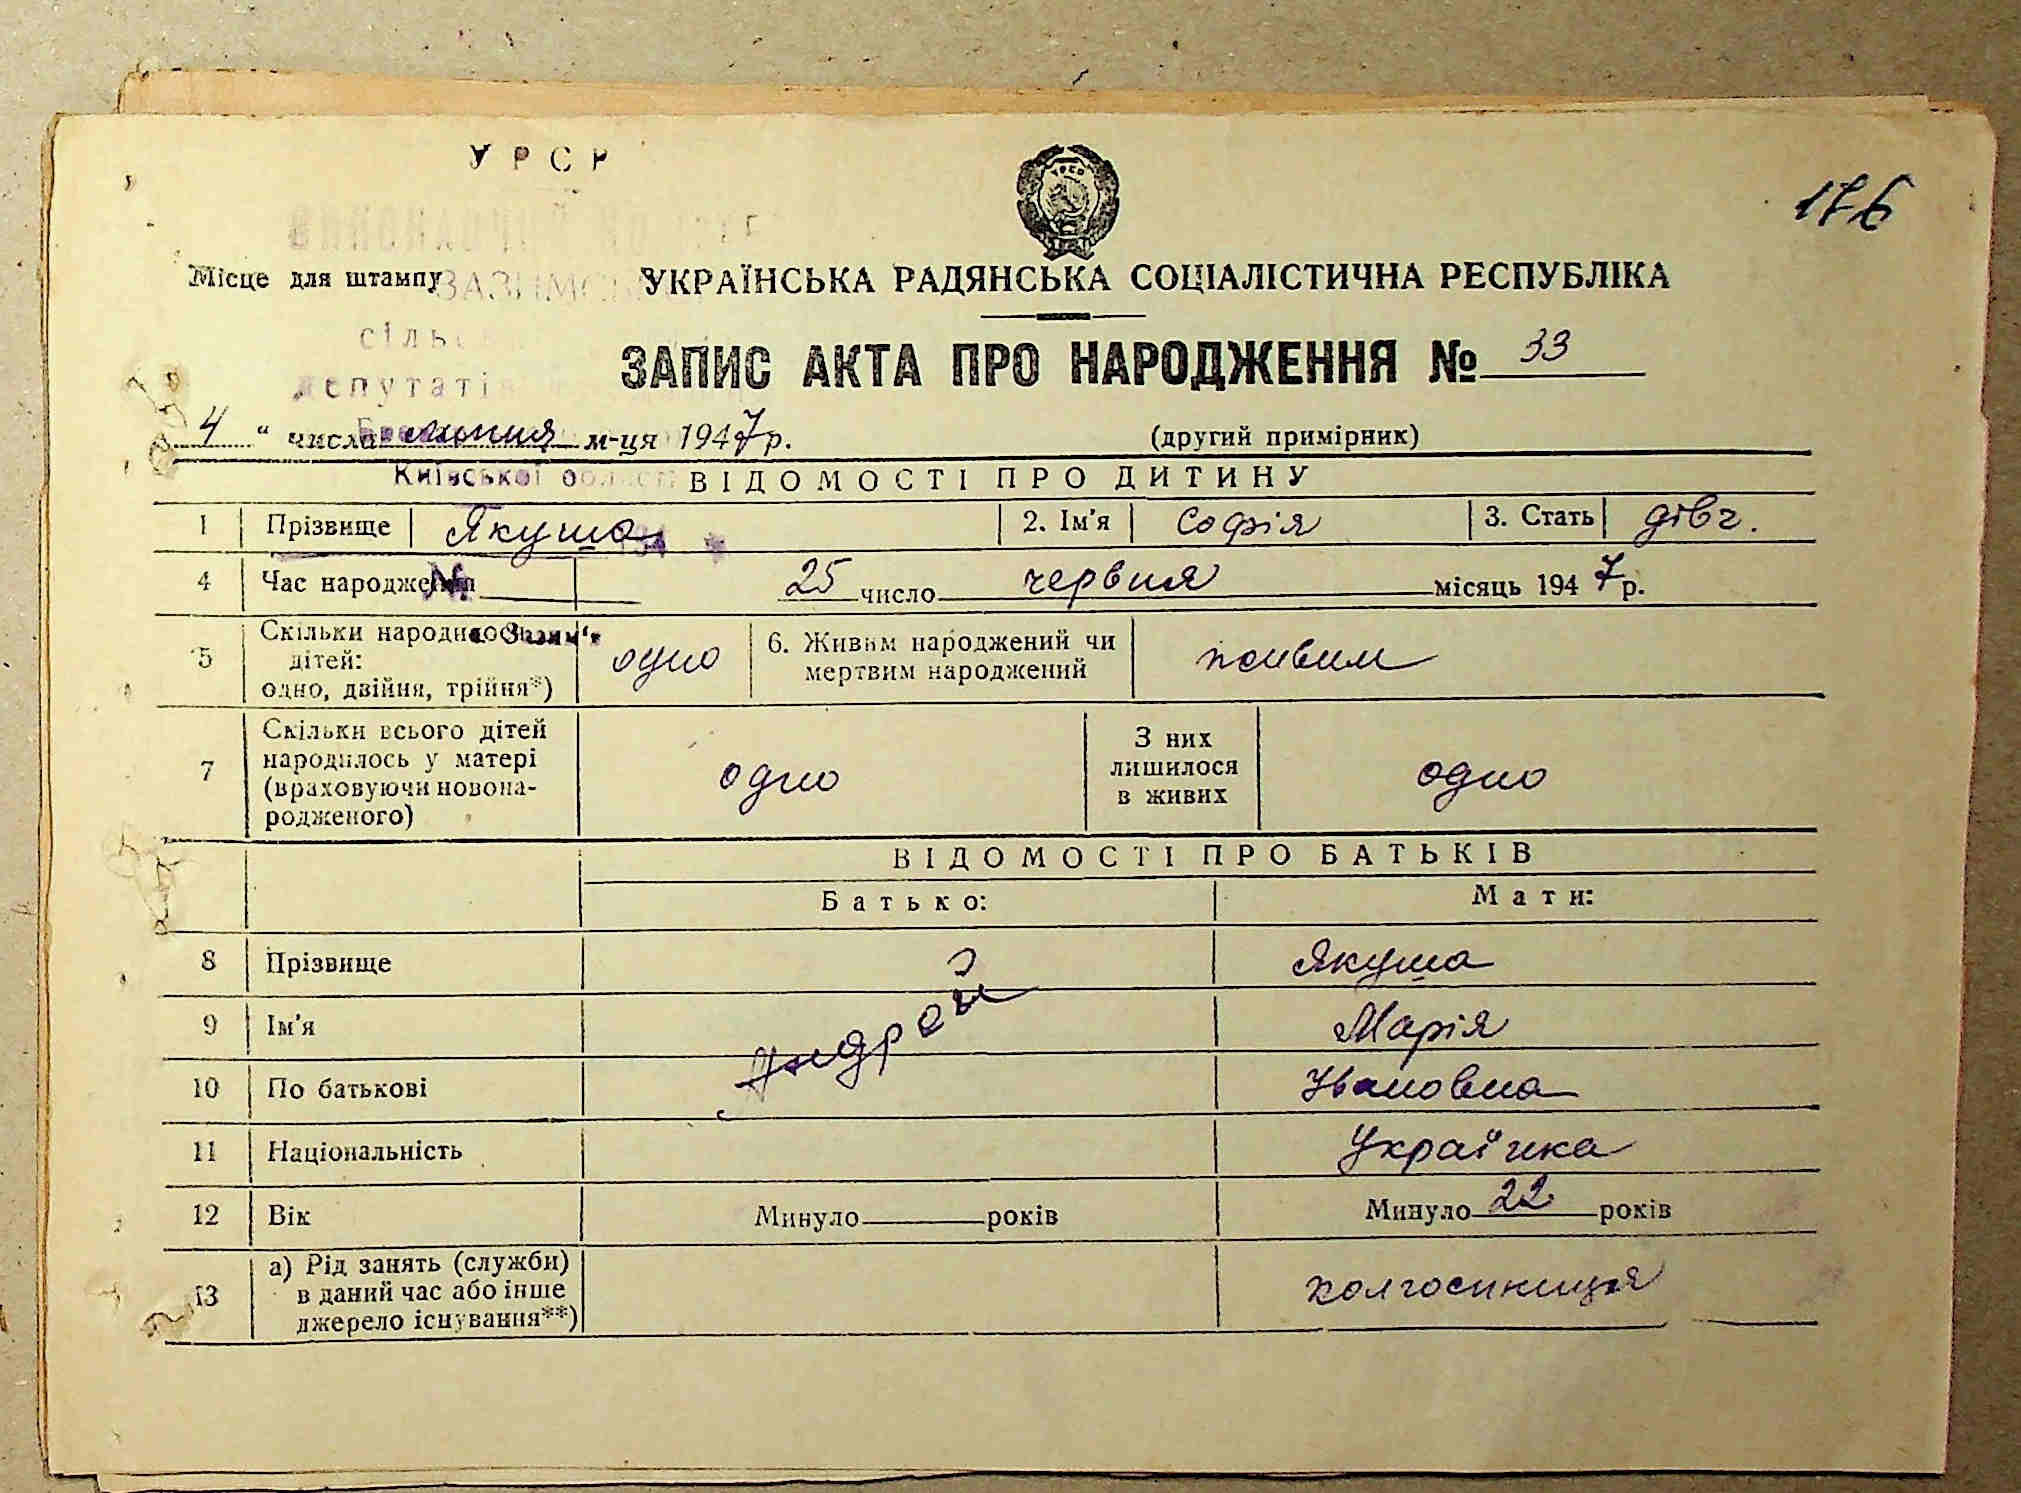 УРСР
176
Місце для штампу
УКРАЇНСЬКА РАДЯНСЬКА СОЦІАЛІСТИЧНА РЕСПУБЛІКА
ЗАПИС АКТА ПРО НАРОДЖЕННЯ № 33
депутатів
4 " числа липня м-ця 1947 р. (другий примірник)
Київської області
ВІДОМОСТІ ПРО ДИТИНУ
1 Прізвище Якуша 2. Ім'я Софія 3. Стать дівч.
4 Час народження 25 число червня місяць 1947 р.
№
5 Скільки народилось дітей: одно, двійня, трійня*) одно 6. Живим народжений чи мертвим народжений живим
7 Скільки всього дітей народилось у матері (враховуючи новонародженого) одно З них лишилося в живих одно
ВІДОМОСТІ ПРО БАТЬКІВ
Батько: Мати:
8 Прізвище Якуша
9 Ім'я Андрей Марія
10 По батькові Ивановна
11 Національність Українка
12 Вік Минуло років Минуло 22 років
13 а) Рід занять (служби) в даний час або інше джерело існування**) колгоспниця